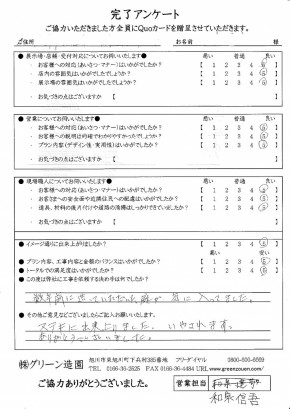 完了アンケート
ご協力いただきました方全員にQuoカードを贈呈させていただきます。
ご住所 お名前 様
●展示場・店舗・受付対応についてお伺いします■ 悪い 普通 良い
・お客様への対応(あいさつ・マナー)はいかがでしたか? 【 1 2 3 4 5 】
・店内の雰囲気はいかがでしたでしょうか? 【 1 2 3 4 5 】
・展示場の雰囲気はいかがでしたか? 【 1 2 3 4 5 】
・お気づきの点はございますか 【 】
●営業についてお伺いします■ 悪い 普通 良い
・お客様への対応(あいさつ・マナー)はいかがでしたか? 【 1 2 3 4 5 】
・お客様への説明は的確でわかりやすかったでしょうか? 【 1 2 3 4 5 】
・プラン内容(デザイン性・実用性)はいかがでしたか? 【 1 2 3 4 5 】
・お気づきの点はございますか 【 】
●現場職人についてお伺いします■ 悪い 普通 良い
・お客様への対応(あいさつ・マナー)はいかがでしたか? 【 1 2 3 4 5 】
・お客さまへの安全面や近隣住民への配慮はいかがでしたか? 【 1 2 3 4 5 】
・道具、材料の後片付けや道路の清掃はしっかりできていましたか? 【 1 2 3 4 5 】
・お気づきの点はございますか 【 】
●イメージ通りに出来上がりましたか? 【 1 2 3 4 5 】
●プラン内容、工事内容と金額のバランスはいかがでしたか? 【 1 2 3 4 5 】
●トータルでの満足度はいかがでしたか? 【 1 2 3 4 5 】
●この度は弊社に工事を依頼する決め手は何でしたか?
数年前に造っていただいた庭が気に入ってました。
●その他ご意見などございましたらご記入お願いいたします。
ステキに出来上りました。いやされます。
ありがとうございました。
㈱グリーン造園
旭川市東旭川町下兵村385番地 フリーダイヤル 0800-800-8559
TEL 0166-36-2525 FAX 0166-36-4484 URL www.greenzouen.com/
ご協力ありがとうございました。
営業担当
和泉信吾